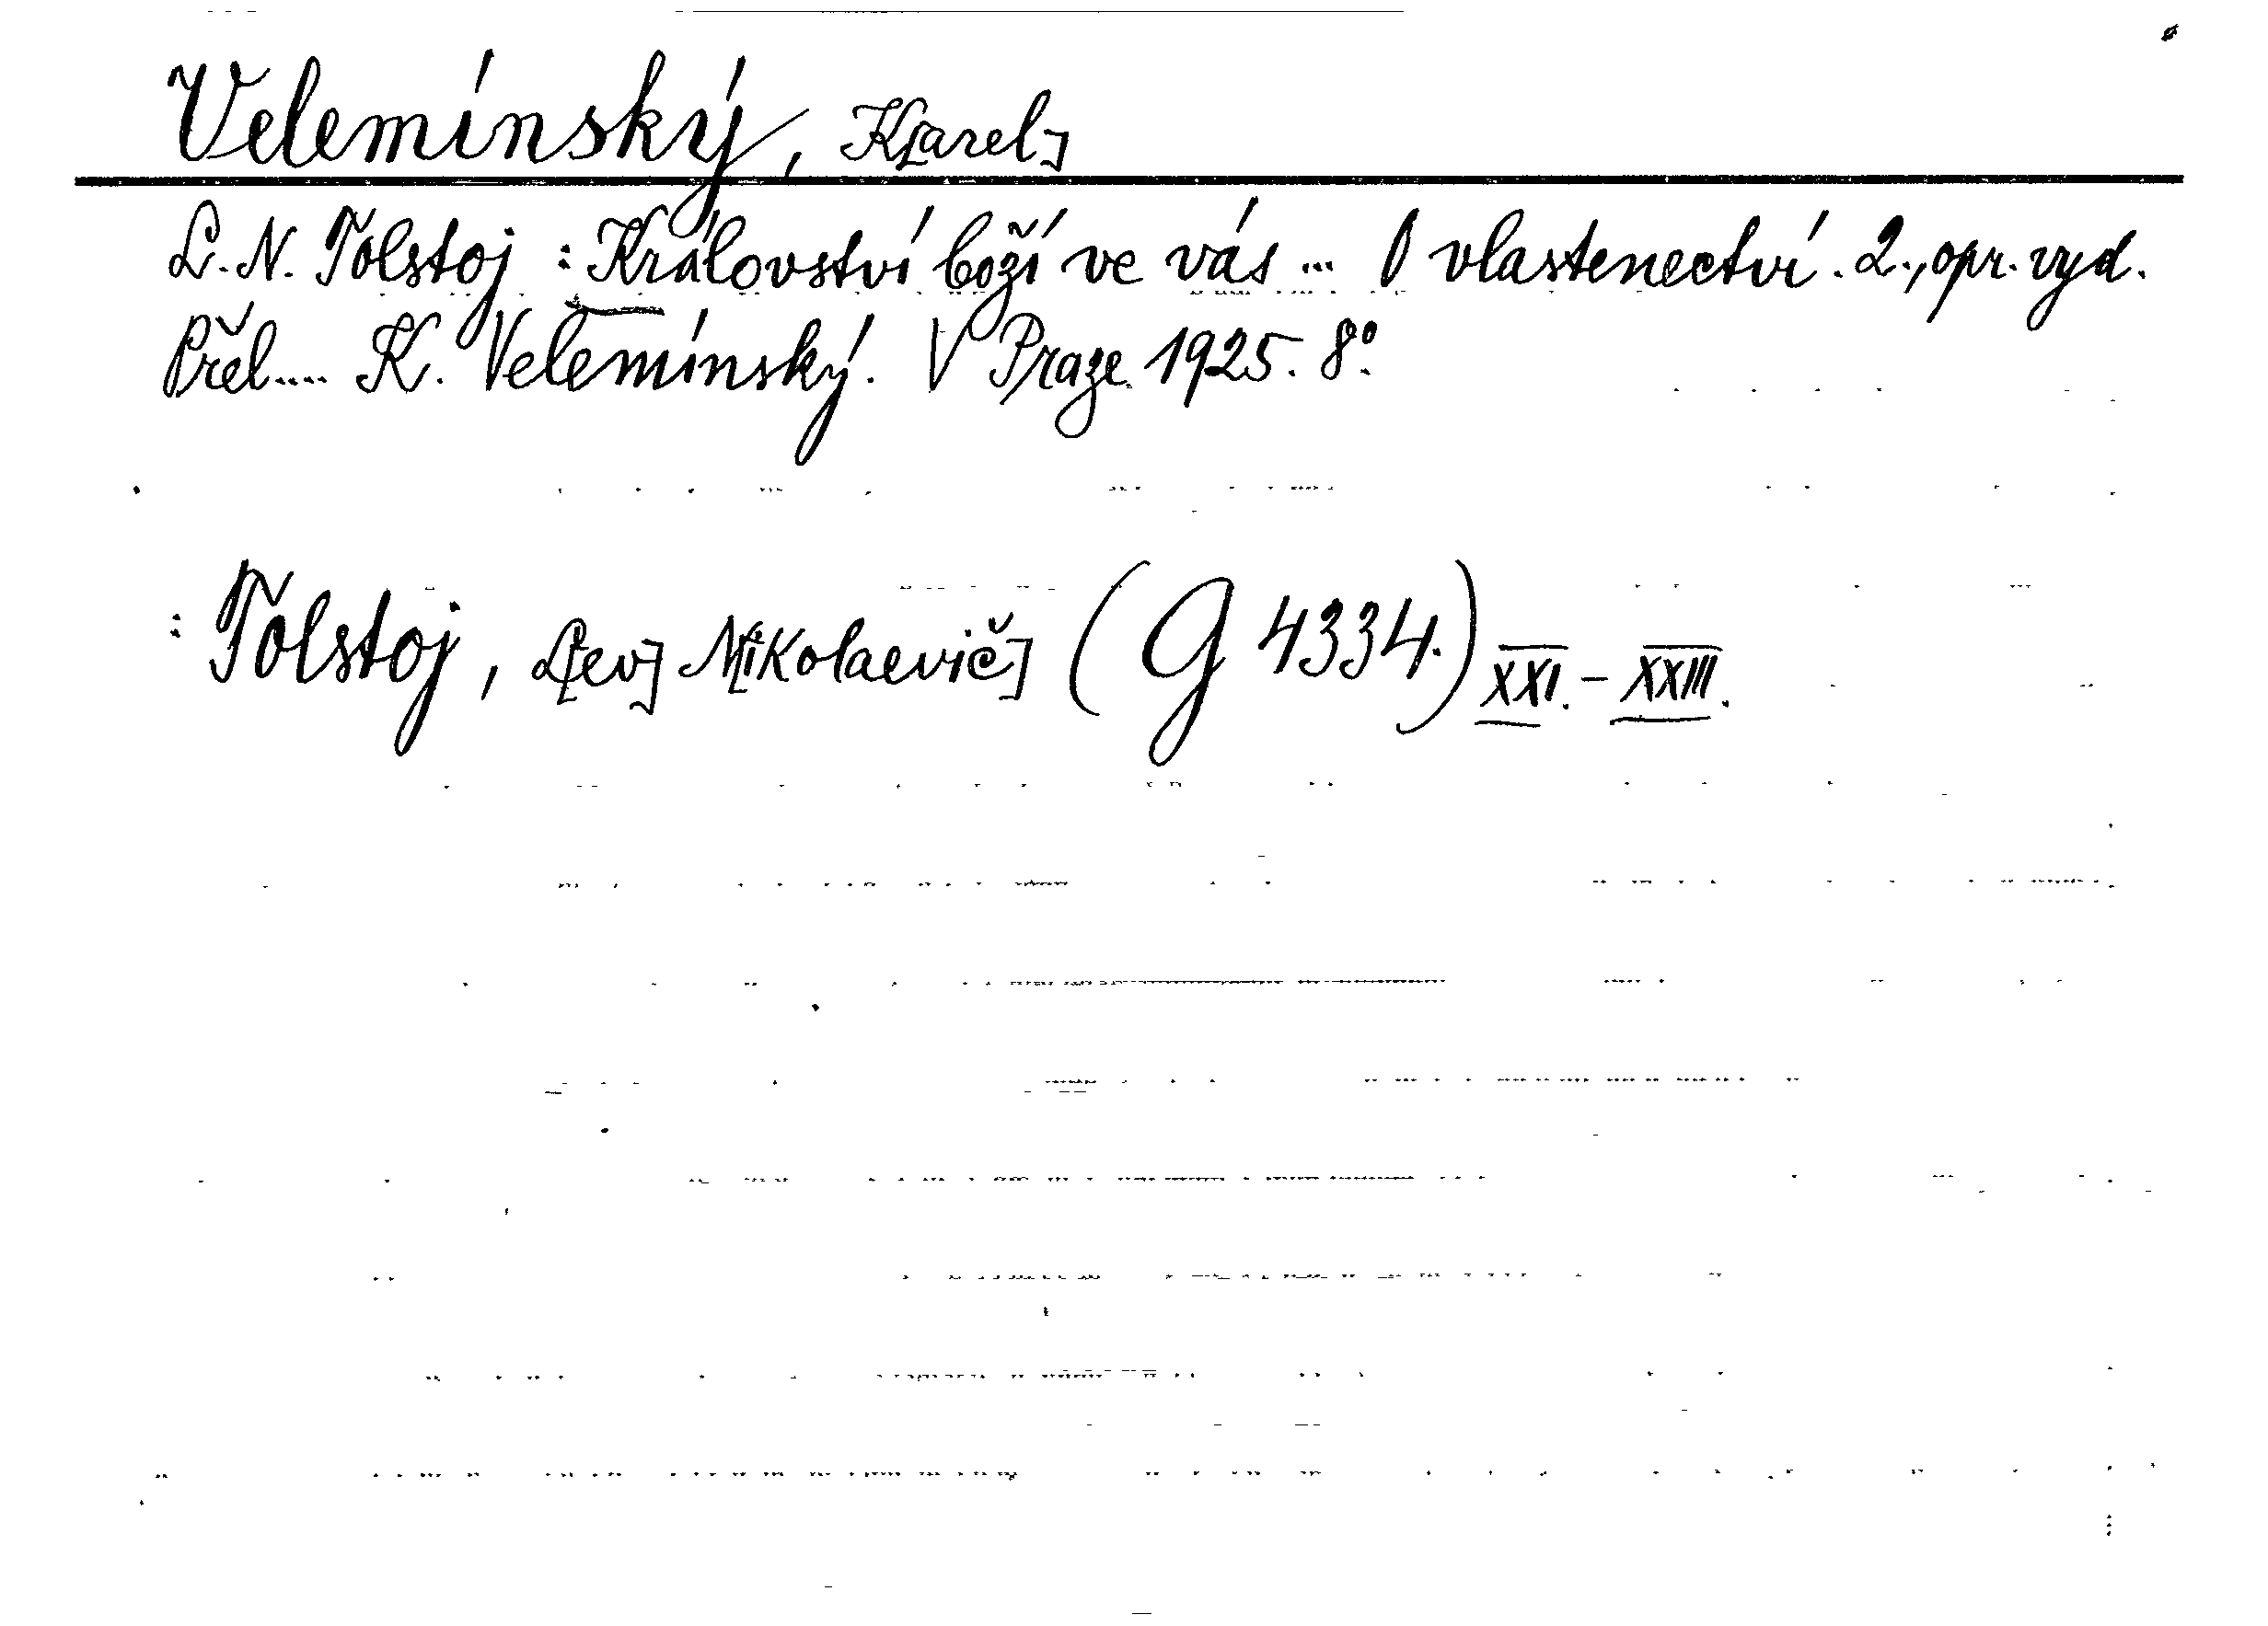 Velemínský, K[arel]
L. N. Tolstoj : Království boží ve vás ... O vlastenectví. 2., opr. vyd.
Přel.... K. Velemínský. V Praze 1925. 8°.
: Tolstoj, L[ev] N[ikolaevič] (G 4334.) XXI. - XXIII.